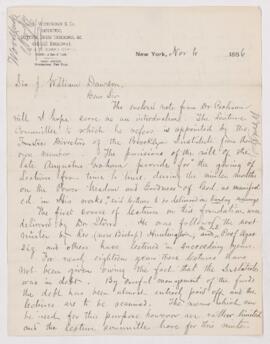 & Co.
New York, Nov 6 1886
Sir J. William Dawson,
Dear Sir
The enclosed note from Dr Graham
will I hope serve as an introduction. The Lecture
Committee to which he refers is appointed by the
Directors of the Brooklyn Institute from their
own number. The provisions of the will of the
late Augustus Graham provide "for the giving of
Lectures from time to time, during the winter months
on the Power Wisdom and Goodness of God, as manifest-
ed in His works," said lectures to be delivered on Sunday evenings
The first course of lectures on this foundation, was
delivered by Dr Storrs. He was followed the next
winter by Dr now Bishop Huntington, and Prof Agas-
siz and others have lectured in succeeding years.
For nearly eighteen years these lectures have
not been given owing to the fact that the Institute
was in debt. By careful management of the funds
the debt has been almost entirely paid off and the
lectures are to be resumed. The means which can
be used for this purpose however are rather limited
and the lecture committee have for this winter